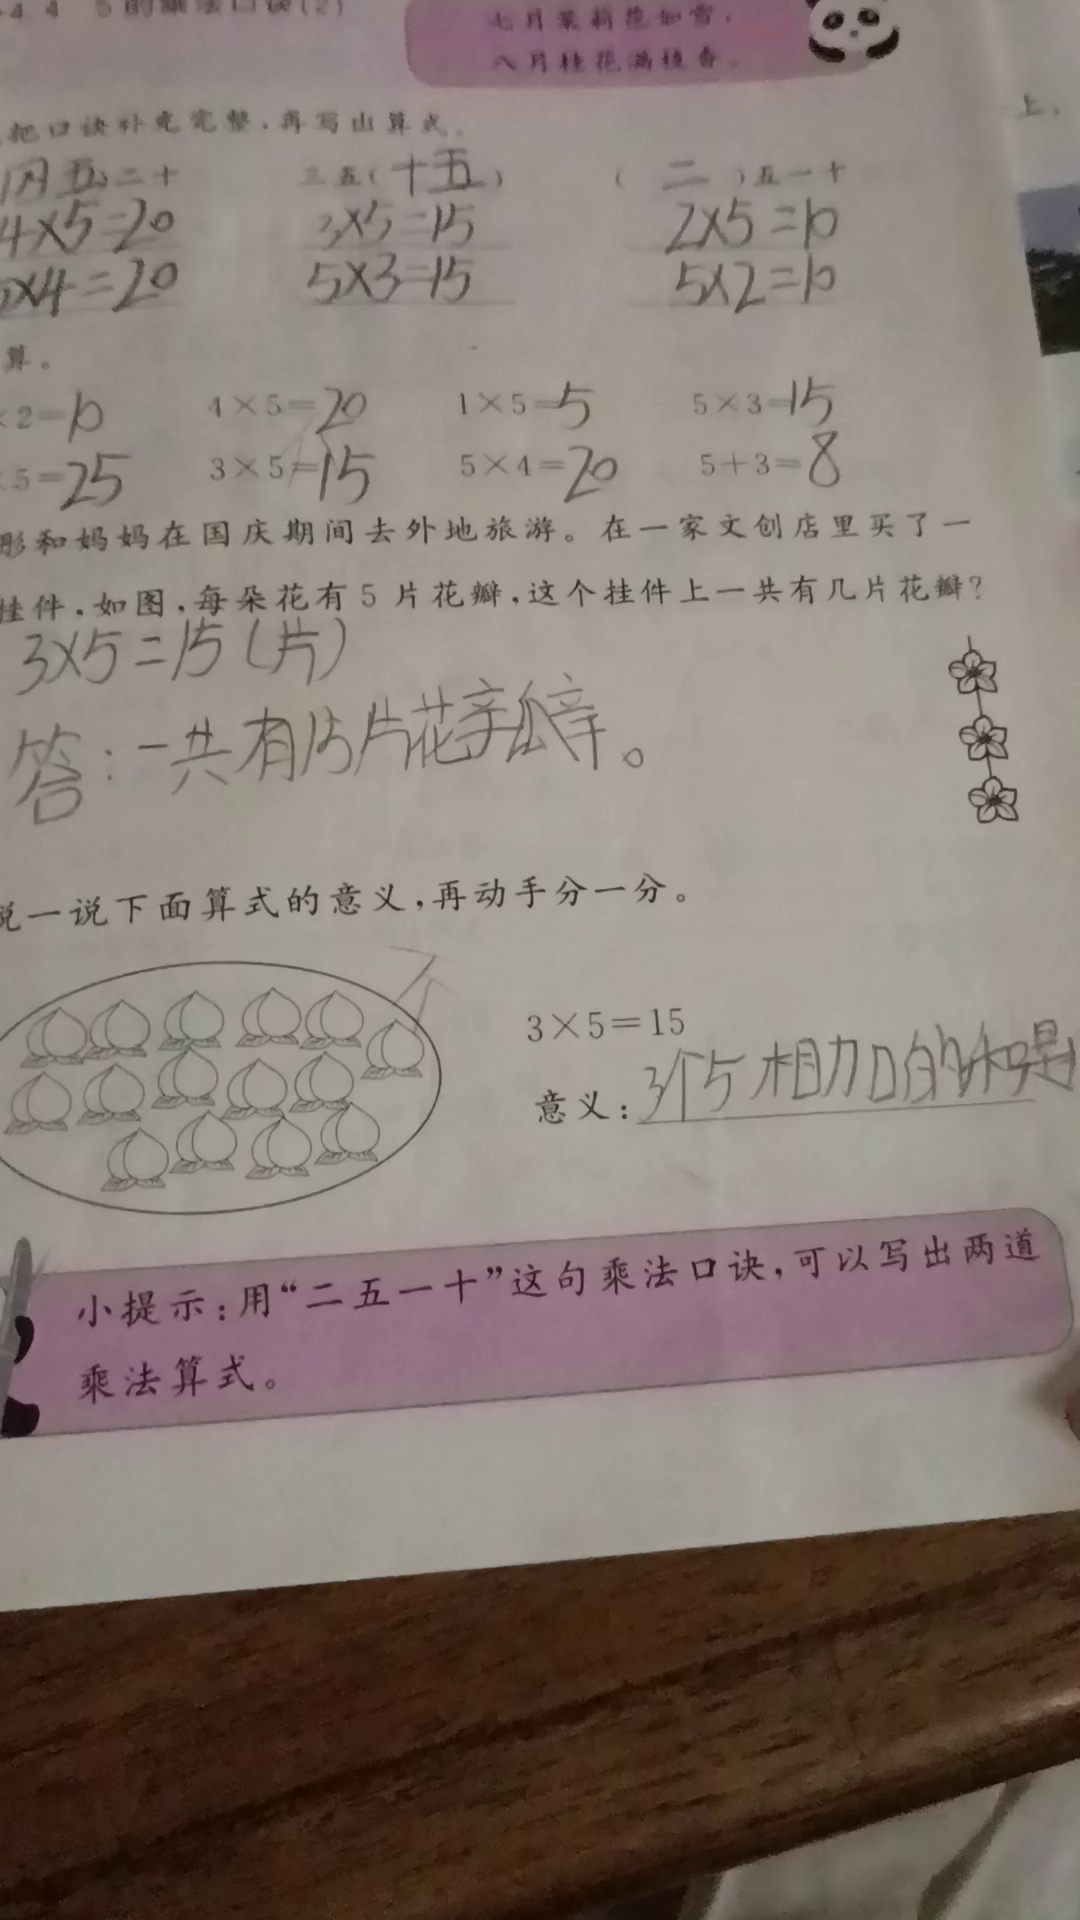 4.4 5的乘法口诀(2)
七月茉莉花如雪,
八月桂花满枝香。
上。
把口诀补充完整,再写出算式。
四五二十 三五(十五) (二)五一十
4×5=20 3×5=15 2×5=10
5×4=20 5×3=15 5×2=10
算。
×2=10 4×5=20 1×5=5 5×3=15
×5=25 3×5=15 5×4=20 5+3=8
彤和妈妈在国庆期间去外地旅游。在一家文创店里买了一
挂件,如图,每朵花有5片花瓣,这个挂件上一共有几片花瓣?
3×5=15(片)
答:一共有15片花瓣。
说一说下面算式的意义,再动手分一分。
个
3×5=15
意义:3个5相加的和是
小提示:用“二五一十”这句乘法口诀,可以写出两道
乘法算式。